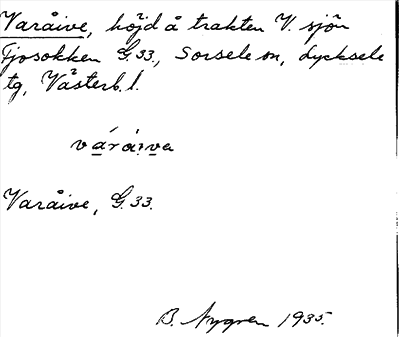 Varåive, höjd å trakten V. sjön
Fjosokken G.33., Sorsele sn, Lycksele
tg, Västerb. l.
várȧ́i̯va
Varåive, G.33.
B. Nygren 1935.